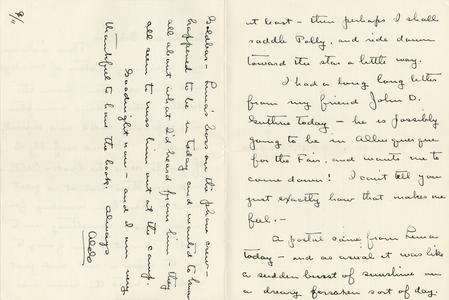 at least - then perhaps I shall
saddle Polly, and ride down
toward the star a little way.
I had a long long letter
from my friend John D.
Guthrie today - he is possibly
going to be in Albuquerque
for the Fair, and wants me to
come down! I can't tell you
just exactly how that makes me
feel. -
A postal came from Luna
today - and as usual it was like
a sudden burst of sunshine on
a dreary forsaken sort of day.
- Luna's boss on the phone crew -
happened to be in today and wanted to know
all about what I'd heard from him - they
all seem to miss him out at the camp.
Goodnight now - and I am very
thankful to have the book. Always
Aldo
9/11